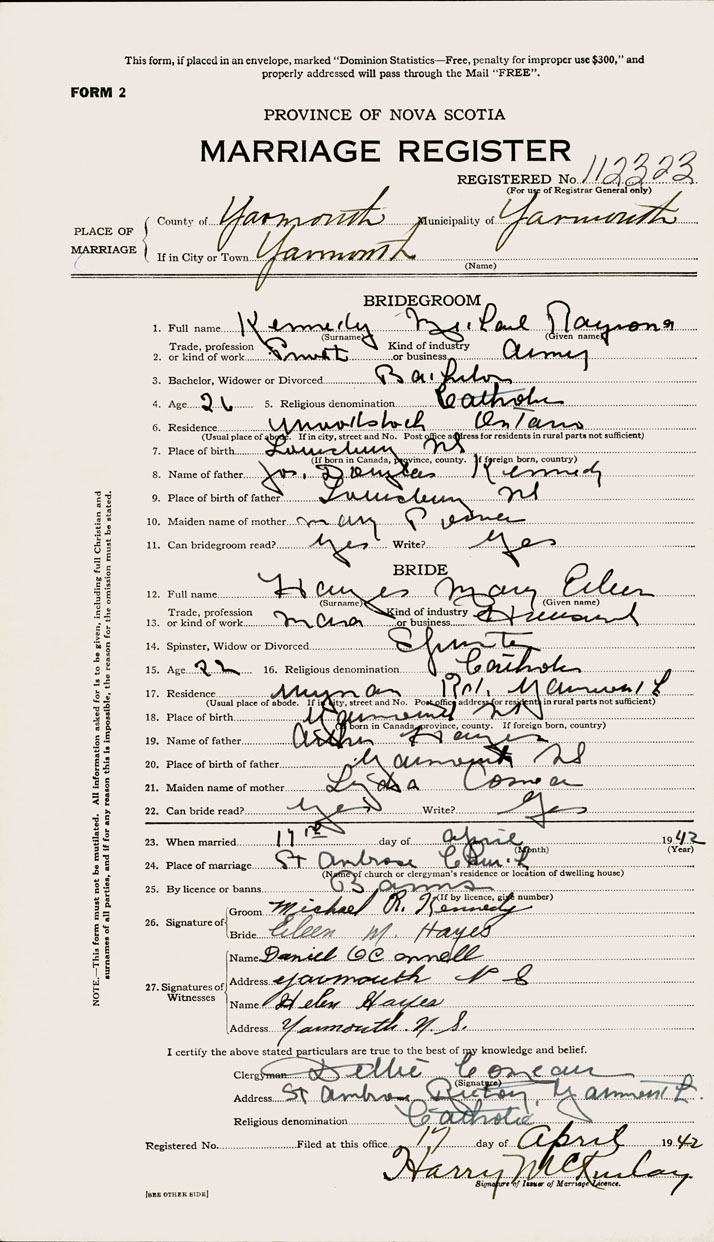 This form, if placed in an envelope, marked "Dominion Statistics—Free, penalty for improper use $300," and
properly addressed will pass through the Mail "FREE".
FORM 2
PROVINCE OF NOVA SCOTIA
MARRIAGE REGISTER
REGISTERED No. 112323
(For use of Registrar General only)
PLACE OF MARRIAGE
County of Yarmouth Municipality of Yarmouth
If in City or Town Yarmouth
(Name)
BRIDEGROOM
1. Full name Kennedy Michael Raymond
(Surname) (Given name)
Trade, profession Kind of industry
2. or kind of work or business Army
3. Bachelor, Widower or Divorced Bachelor
4. Age 26 5. Religious denomination Catholic
6. Residence Woodstock Ontario
(Usual place of abode. If in city, street and No. Post office address for residents in rural parts not sufficient)
7. Place of birth Louisburg NS
(If born in Canada, province, county. If foreign born, country)
8. Name of father Jos. Douglas Kennedy
9. Place of birth of father Louisburg NS
10. Maiden name of mother Mary
11. Can bridegroom read? Yes Write? Yes
BRIDE
12. Full name Hayes Mary Eileen
(Surname) (Given name)
Trade, profession Kind of industry
13. or kind of work or business
14. Spinster, Widow or Divorced Spinster
15. Age 22 16. Religious denomination Catholic
17. Residence Rd. Yarmouth
(Usual place of abode. If in city, street and No. Post office address for residents in rural parts not sufficient)
18. Place of birth Yarmouth NS
(If born in Canada, province, county. If foreign born, country)
19. Name of father Arthur Hayes
20. Place of birth of father Yarmouth NS
21. Maiden name of mother Lydia Comeau
22. Can bride read? Yes Write? Yes
23. When married 17th day of April 1942
(Month) (Year)
24. Place of marriage St Ambrose Church
(Name of church or clergyman's residence or location of dwelling house)
25. By licence or banns Banns
(If by licence, give number)
26. Signature of
Groom Michael R. Kennedy
Bride Eileen M. Hayes
27. Signatures of Witnesses
Name Daniel O'Connell
Address Yarmouth N S
Name Helen Hayes
Address Yarmouth N.S.
I certify the above stated particulars are true to the best of my knowledge and belief.
Clergyman Comeau
(Signature)
Address St Ambrose Rectory, Yarmouth
Religious denomination Catholic
Registered No. Filed at this office 17 day of April 1942
Harry McKinlay
Signature of Issuer of Marriage Licence.
[SEE OTHER SIDE]
NOTE.—This form must not be mutilated. All information asked for is to be given, including full Christian and
surnames of all parties, and if for any reason this is impossible, the reason for the omission must be stated.